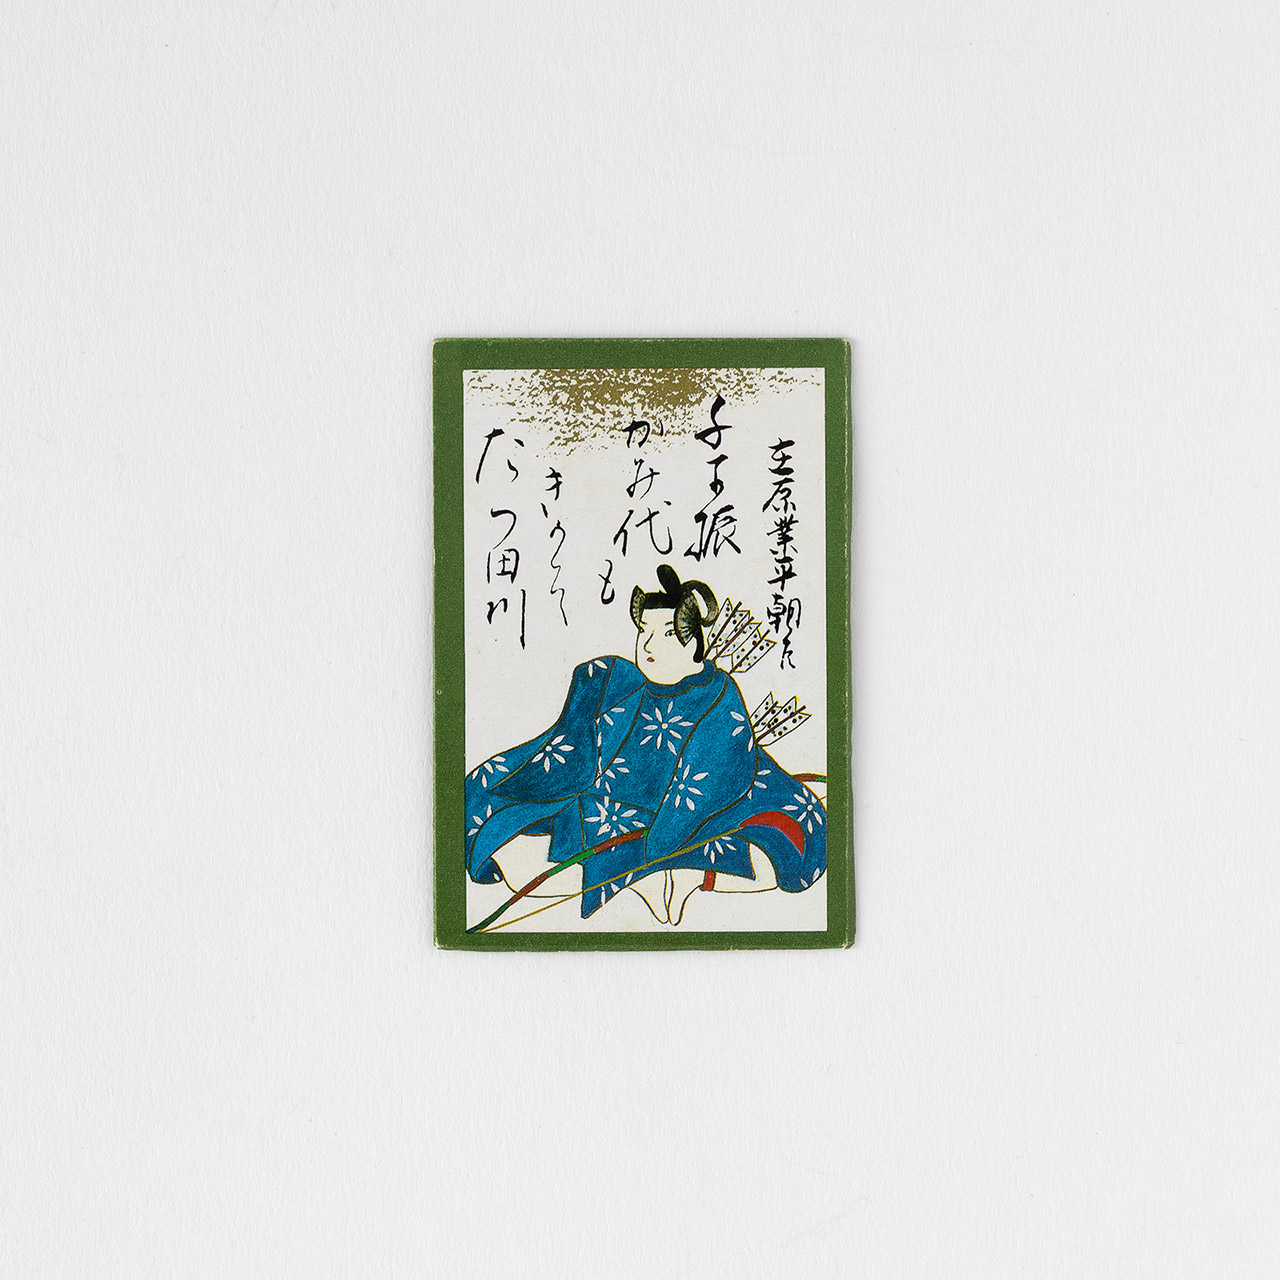 在原業平朝臣
千早振
かみ代も
きかすて
たつ田川